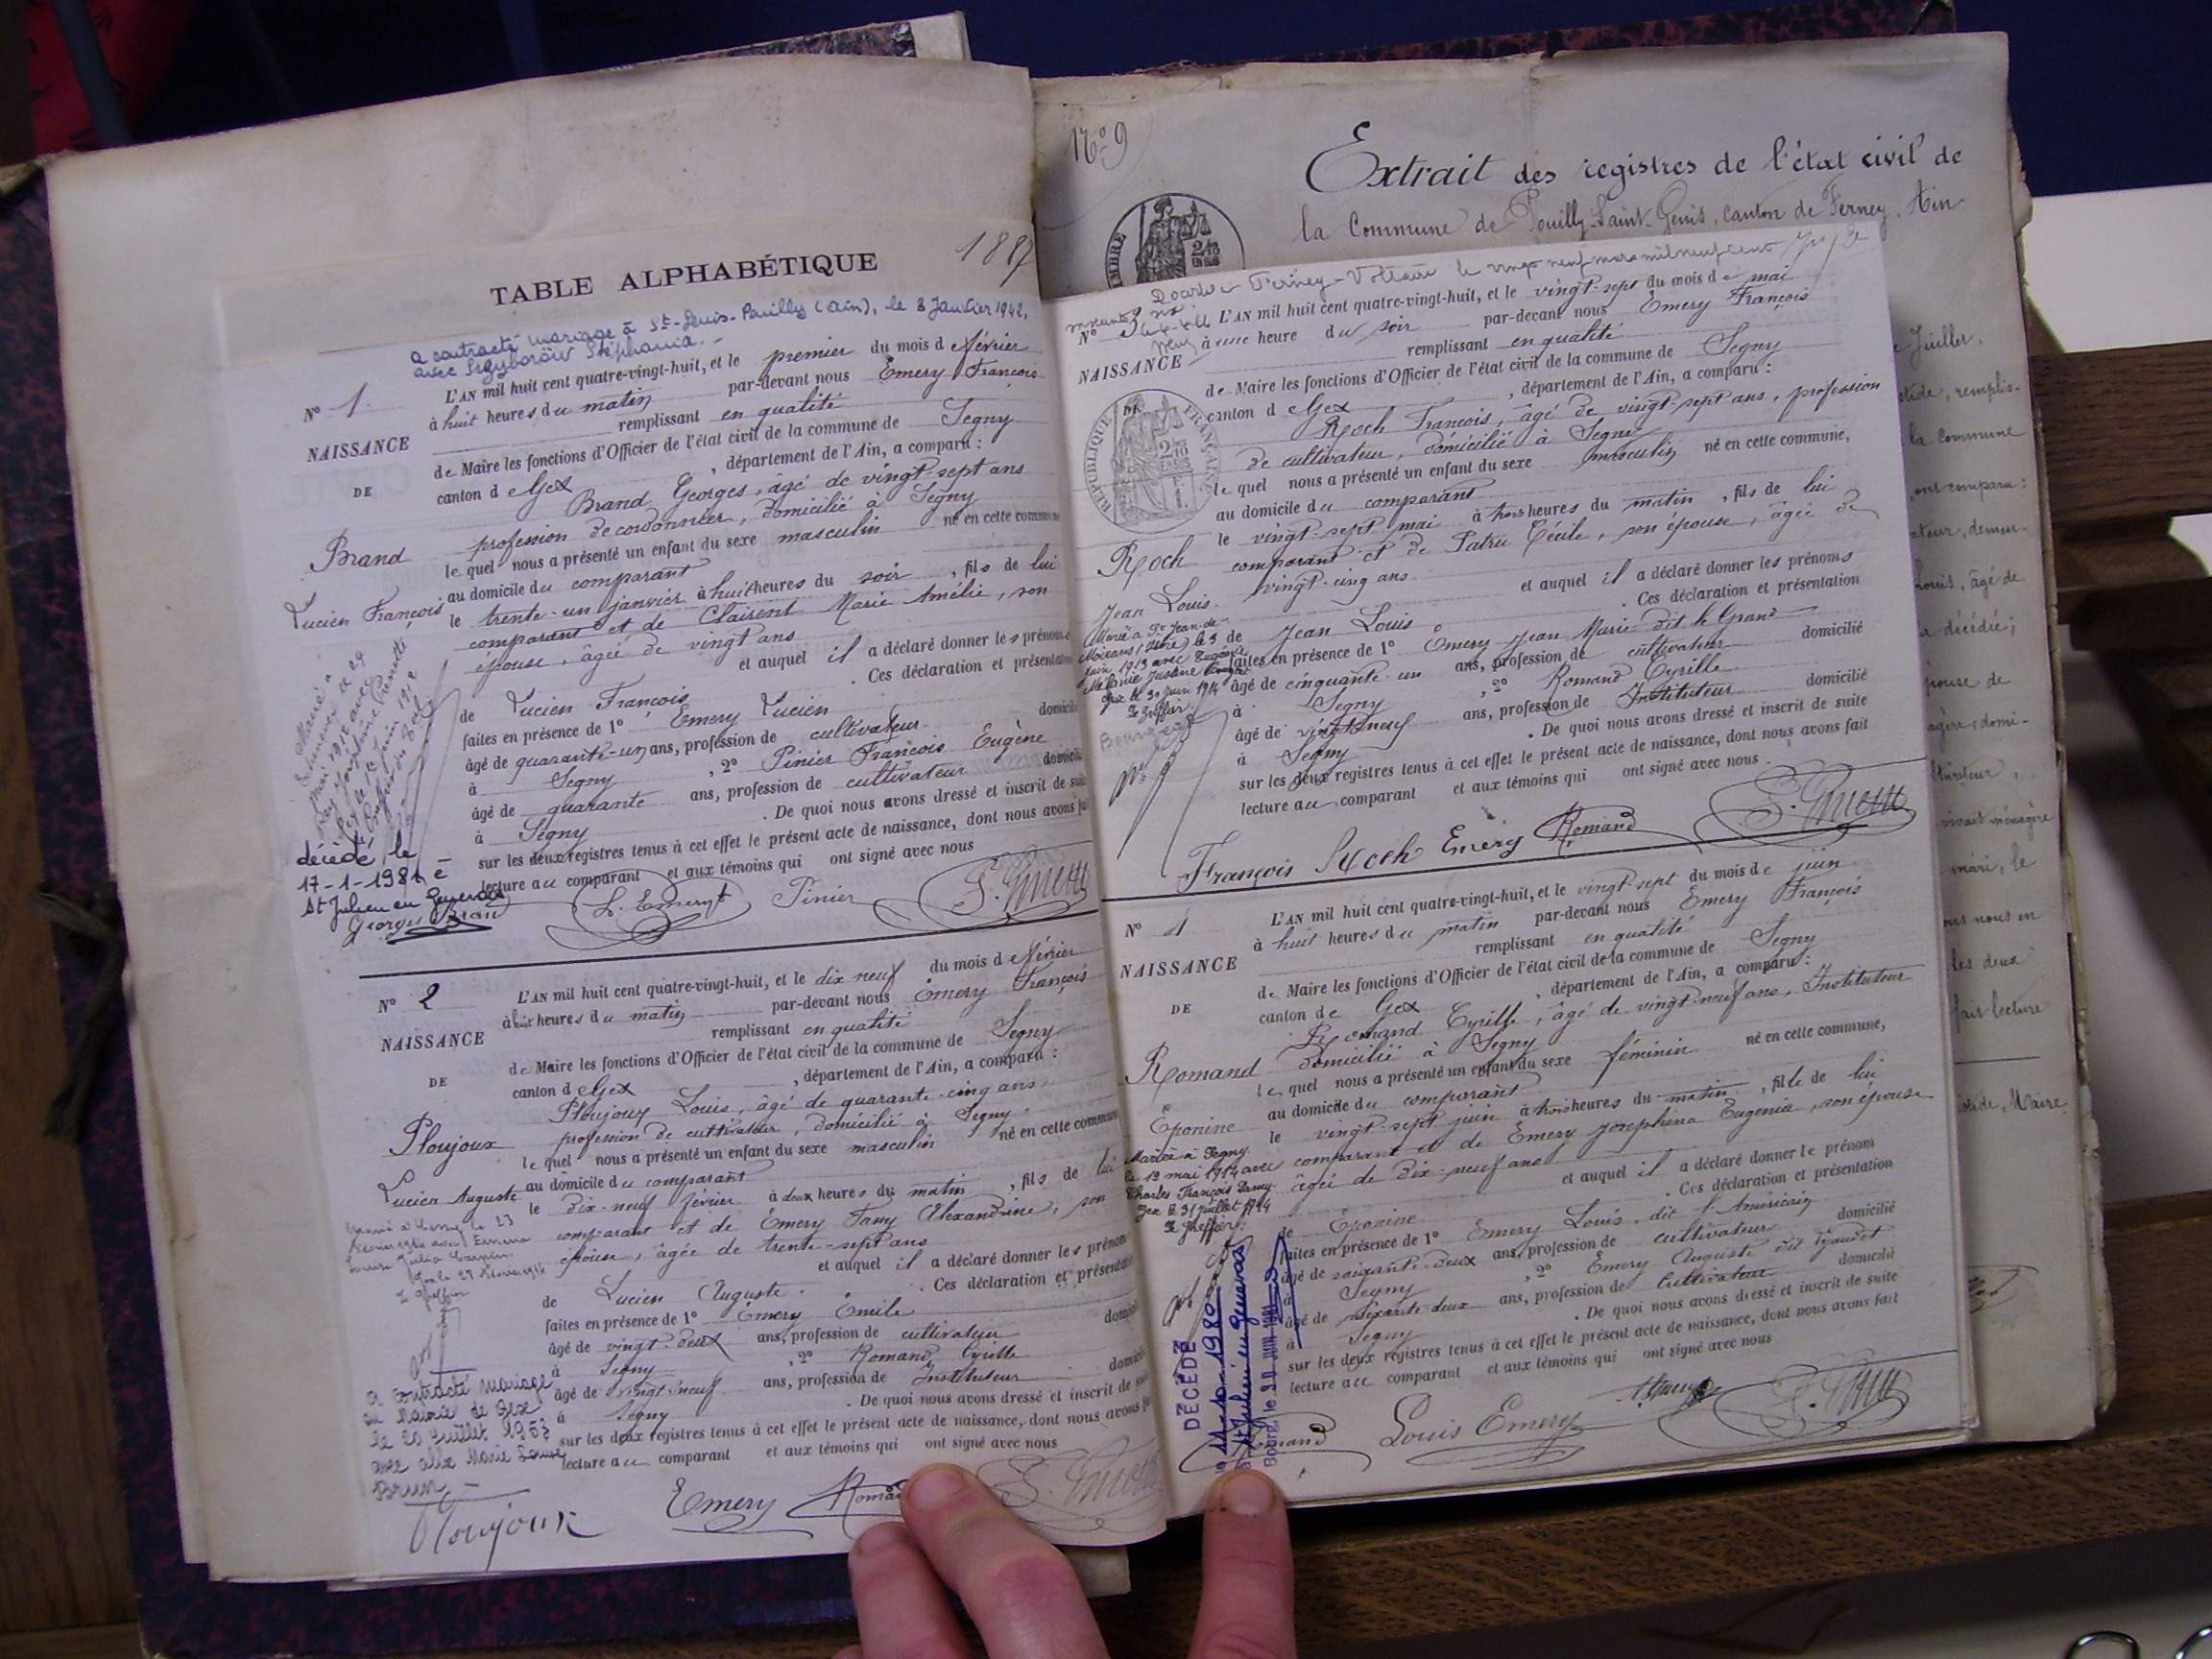 TABLE ALPHABÉTIQUE
a contracté mariage à St-Genis-Pouilly (Ain), le 8 Janvier 1942,
avec Stéphania. -
Nº 1.
NAISSANCE
DE
Brand
Lucien François
L'AN mil huit cent quatre-vingt-huit, et le premier du mois de Février
à huit heures du matin par-devant nous Emery François
remplissant en qualité
de Maire les fonctions d'Officier de l'état civil de la commune de Segny
canton de Gex, département de l'Ain, a comparu :
Brand Georges, âgé de vingt-sept ans
profession de cordonnier, domicilié à Segny
lequel nous a présenté un enfant du sexe masculin né en cette commune
au domicile du comparant
le trente-un janvier à huit heures du soir, fils de lui
comparant et de Clairent Marie Amélie, son
épouse, âgée de vingt ans
et auquel il a déclaré donner les prénoms
de Lucien François. Ces déclaration et présentation
faites en présence de 1º Emery Lucien
âgé de quarante-un ans, profession de cultivateur domicilié
à Segny, 2º Pinier François Eugène
âgé de quarante ans, profession de cultivateur domicilié
à Segny. De quoi nous avons dressé et inscrit de suite
sur les deux registres tenus à cet effet le présent acte de naissance, dont nous avons fait
lecture au comparant et aux témoins qui ont signé avec nous
décédé le
17-1-1981 à
St Julien en Genevois
Georges Brand L. Emery Pinier
Nº 2
NAISSANCE
DE
Ploujoux
Lucien Auguste
L'AN mil huit cent quatre-vingt-huit, et le dix neuf du mois de Février
à huit heures du matin par-devant nous Emery François
remplissant en qualité
de Maire les fonctions d'Officier de l'état civil de la commune de Segny
canton de Gex, département de l'Ain, a comparu :
Ploujoux Louis, âgé de quarante-cinq ans
profession de cultivateur, domicilié à Segny.
lequel nous a présenté un enfant du sexe masculin né en cette commune
au domicile du comparant
le dix-neuf février à deux heures du matin, fils de lui
comparant et de Emery Fany Alexandrine, son
épouse, âgée de trente-sept ans
et auquel il a déclaré donner les prénoms
de Lucien Auguste. Ces déclaration et présentation
faites en présence de 1º Emery Emile
âgé de vingt-deux ans, profession de cultivateur domicilié
à Segny, 2º Romand Cyrille
âgé de vingt-neuf ans, profession de Instituteur domicilié
à Segny. De quoi nous avons dressé et inscrit de suite
sur les deux registres tenus à cet effet le présent acte de naissance, dont nous avons fait
lecture au comparant et aux témoins qui ont signé avec nous
a contracté mariage
en Mairie de Gex
le 20 Juillet 1953
avec Alix Marie Louise
Brun -
Ploujoux Emery Romand
Nº 9
Extrait des registres de l'état civil de
la Commune de Pouilly-Saint-Genis, canton de Ferney, Ain
Nº 3
NAISSANCE
DE
RÉPUBLIQUE FRANÇAISE
Roch
Jean Louis.
L'AN mil huit cent quatre-vingt-huit, et le vingt-sept du mois de mai
à une heure du soir par-devant nous Emery François
remplissant en qualité
de Maire les fonctions d'Officier de l'état civil de la commune de Segny
canton de Gex, département de l'Ain, a comparu :
Roch François, âgé de vingt-sept ans, profession
de cultivateur, domicilié à Segny
lequel nous a présenté un enfant du sexe masculin né en cette commune,
au domicile du comparant
le vingt-sept mai à trois heures du matin, fils de lui
comparant et de Patru Cécile, son épouse, âgée de
vingt-cinq ans
et auquel il a déclaré donner les prénoms
de Jean Louis. Ces déclaration et présentation
faites en présence de 1º Emery Jean Marie dit le Grand
âgé de cinquante-un ans, profession de cultivateur domicilié
à Segny, 2º Romand Cyrille
âgé de vingt-neuf ans, profession de Instituteur domicilié
à Segny. De quoi nous avons dressé et inscrit de suite
sur les deux registres tenus à cet effet le présent acte de naissance, dont nous avons fait
lecture au comparant et aux témoins qui ont signé avec nous.
François Roch Emery Romand
Nº 4
NAISSANCE
DE
Romand
Eponine
L'AN mil huit cent quatre-vingt-huit, et le vingt-sept du mois de juin
à huit heures du matin par-devant nous Emery François
remplissant en qualité
de Maire les fonctions d'Officier de l'état civil de la commune de Segny
canton de Gex, département de l'Ain, a comparu :
Romand Cyrille, âgé de vingt-neuf ans, Instituteur
domicilié à Segny
lequel nous a présenté un enfant du sexe féminin né en cette commune,
au domicile du comparant
le vingt-sept juin à trois heures du matin, fille de lui
comparant et de Emery Josephina Eugenia, son épouse
âgée de dix-neuf ans
et auquel il a déclaré donner le prénom
de Eponine. Ces déclaration et présentation
faites en présence de 1º Emery Louis, dit l'Américain
âgé de soixante-deux ans, profession de cultivateur domicilié
à Segny, 2º Emery Auguste dit
âgé de soixante-deux ans, profession de Cultivateur domicilié
à Segny. De quoi nous avons dressé et inscrit de suite
sur les deux registres tenus à cet effet le présent acte de naissance, dont nous avons fait
lecture au comparant et aux témoins qui ont signé avec nous
Mariée à Segny
le 12 mai 1914 avec
Charles François Lamy
Gex le 31 juillet 1914
Le Greffier:
DÉCÉDÉ
St Julien en Genevois
Romand Louis Emery